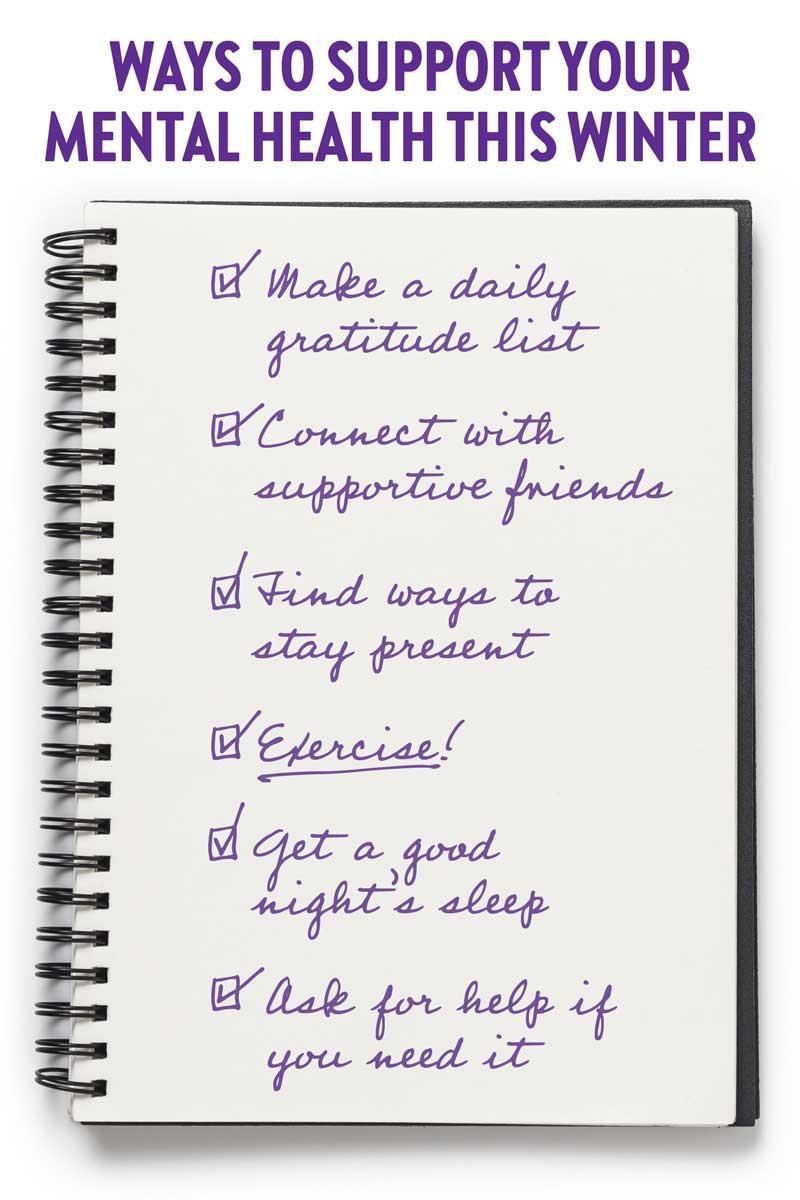 WAYS TO SUPPORT YOUR
MENTAL HEALTH THIS WINTER
Make a daily
gratitude list
Connect with
supportive friends
Find ways to
stay present
Exercise!
Get a good
night's sleep
Ask for help if
you need it